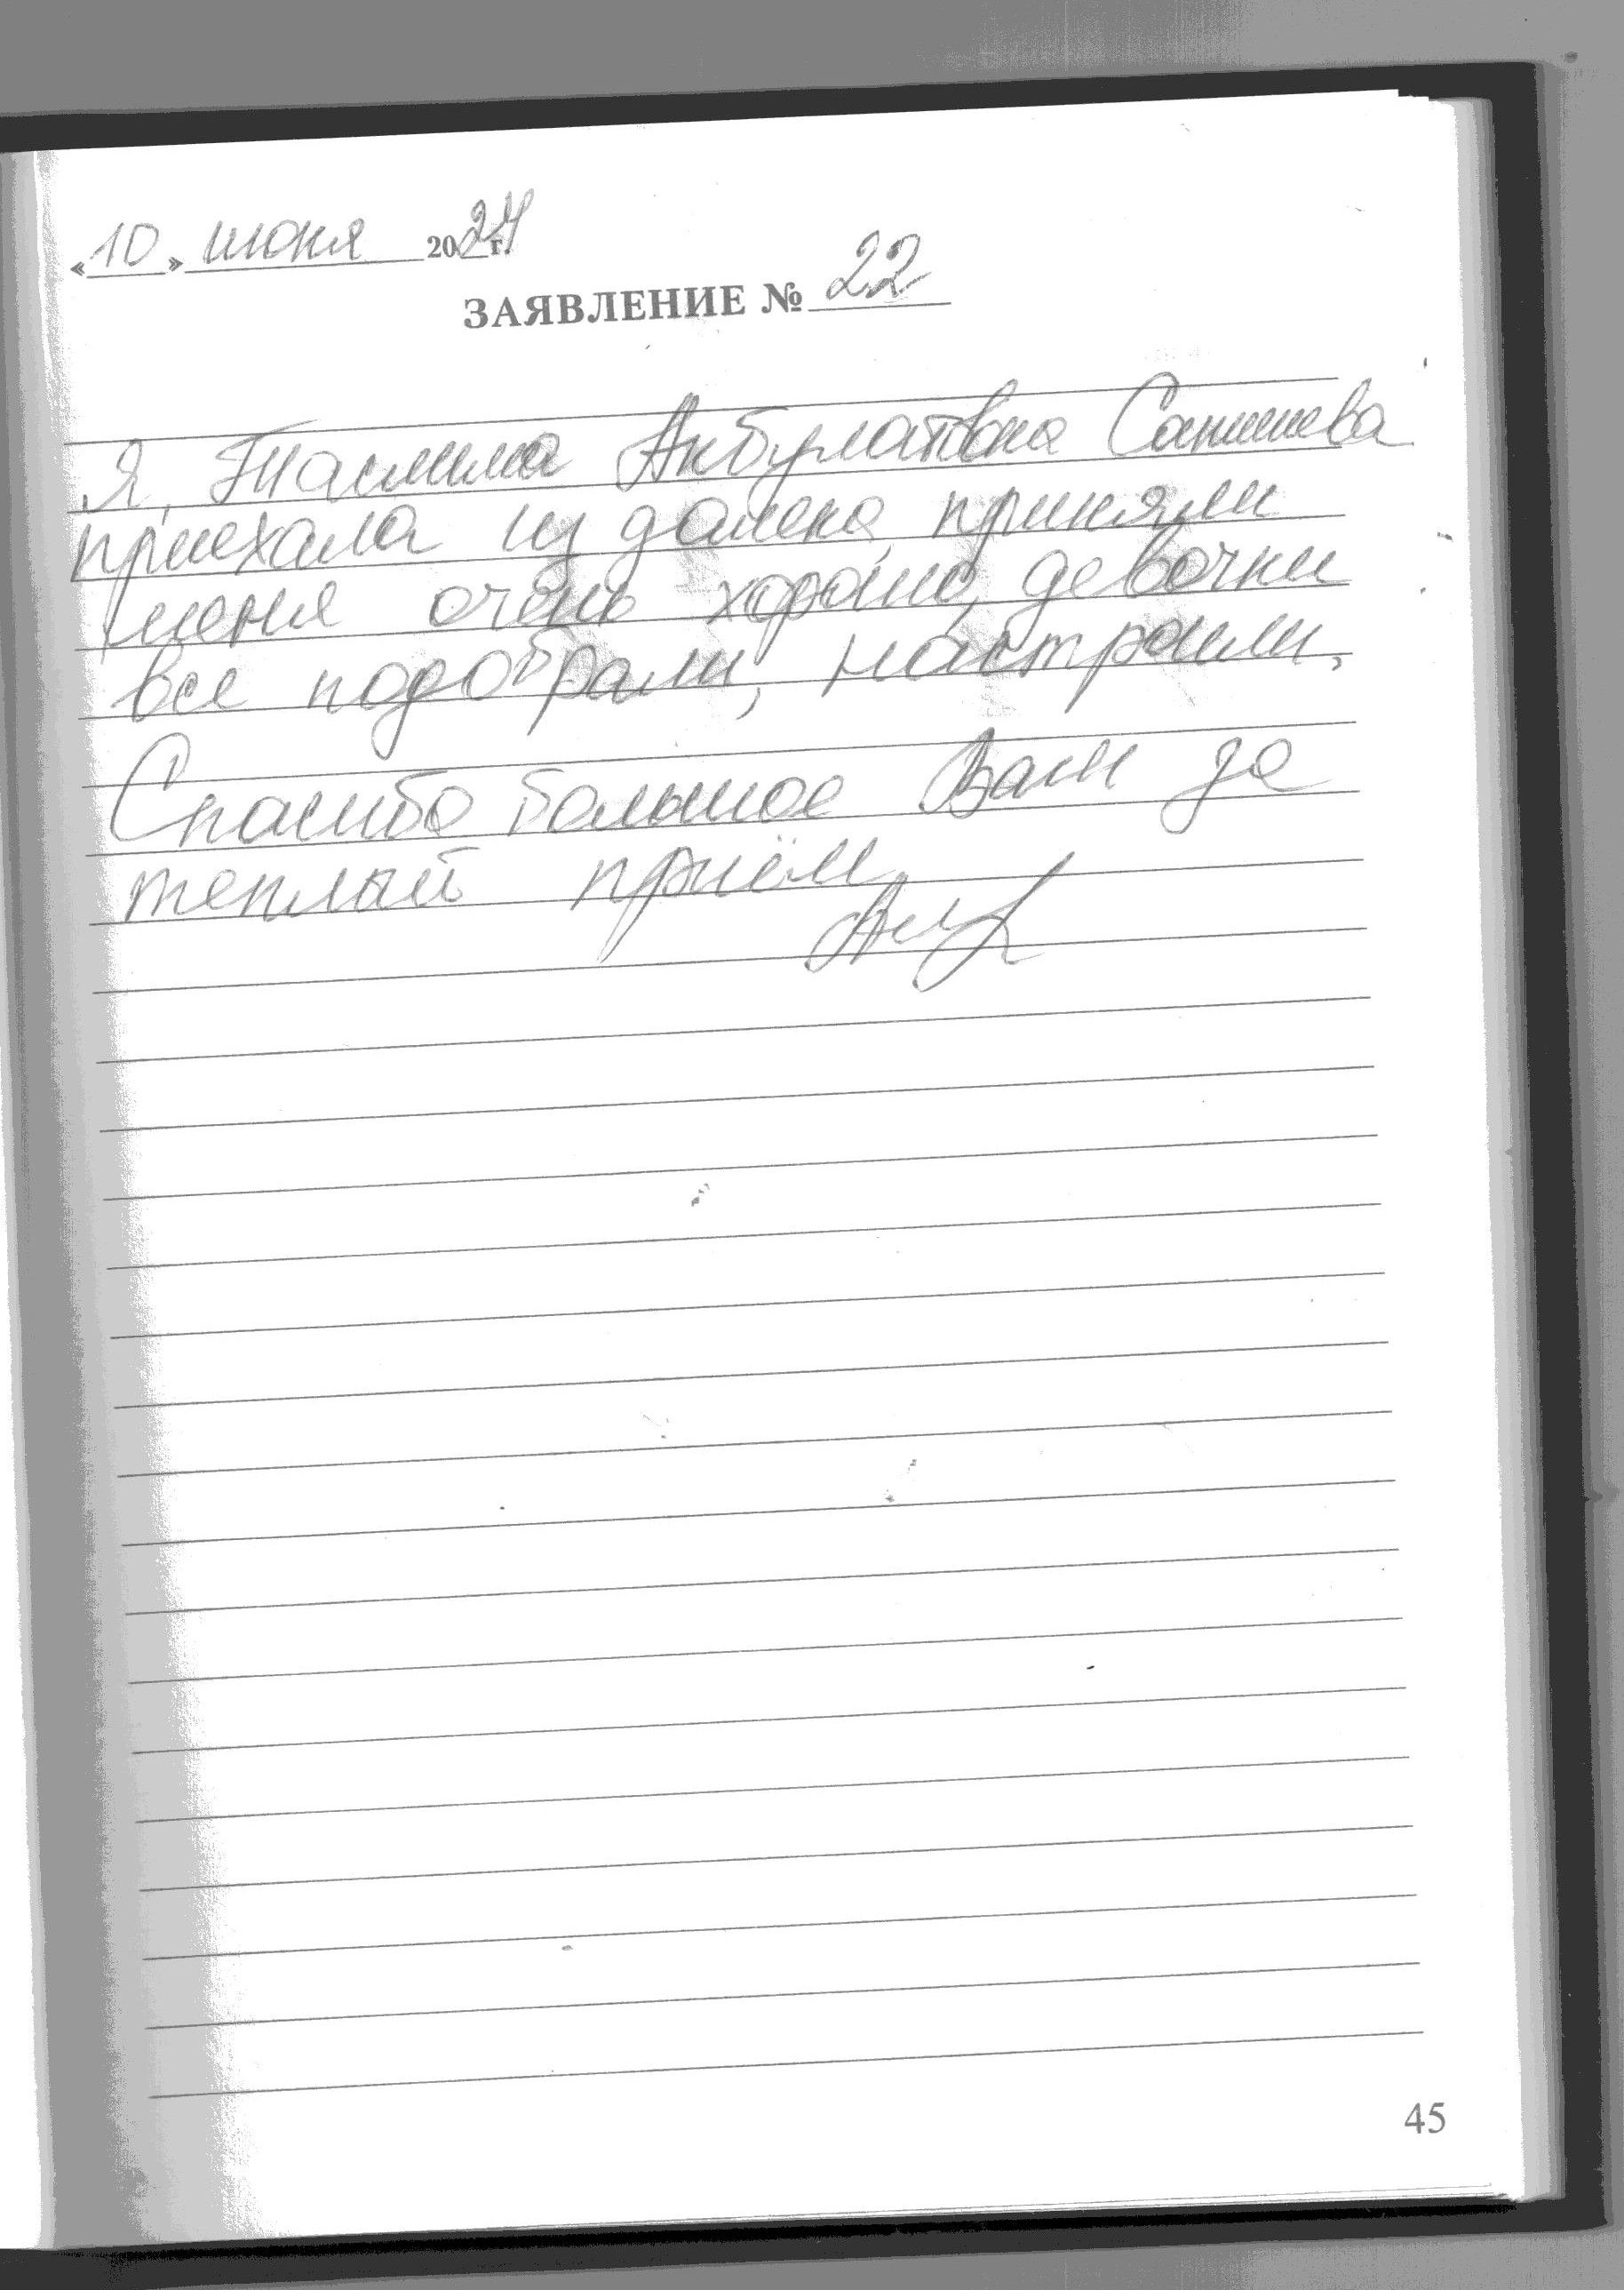 «10» июня 2024 г.
ЗАЯВЛЕНИЕ № 22
Я, Тасмина Акбулатовна
приехала из далека, приняли
меня очень хорошо, девочки
все подобрали, настроили.
Спасибо большое Вам за
теплый приём.
45